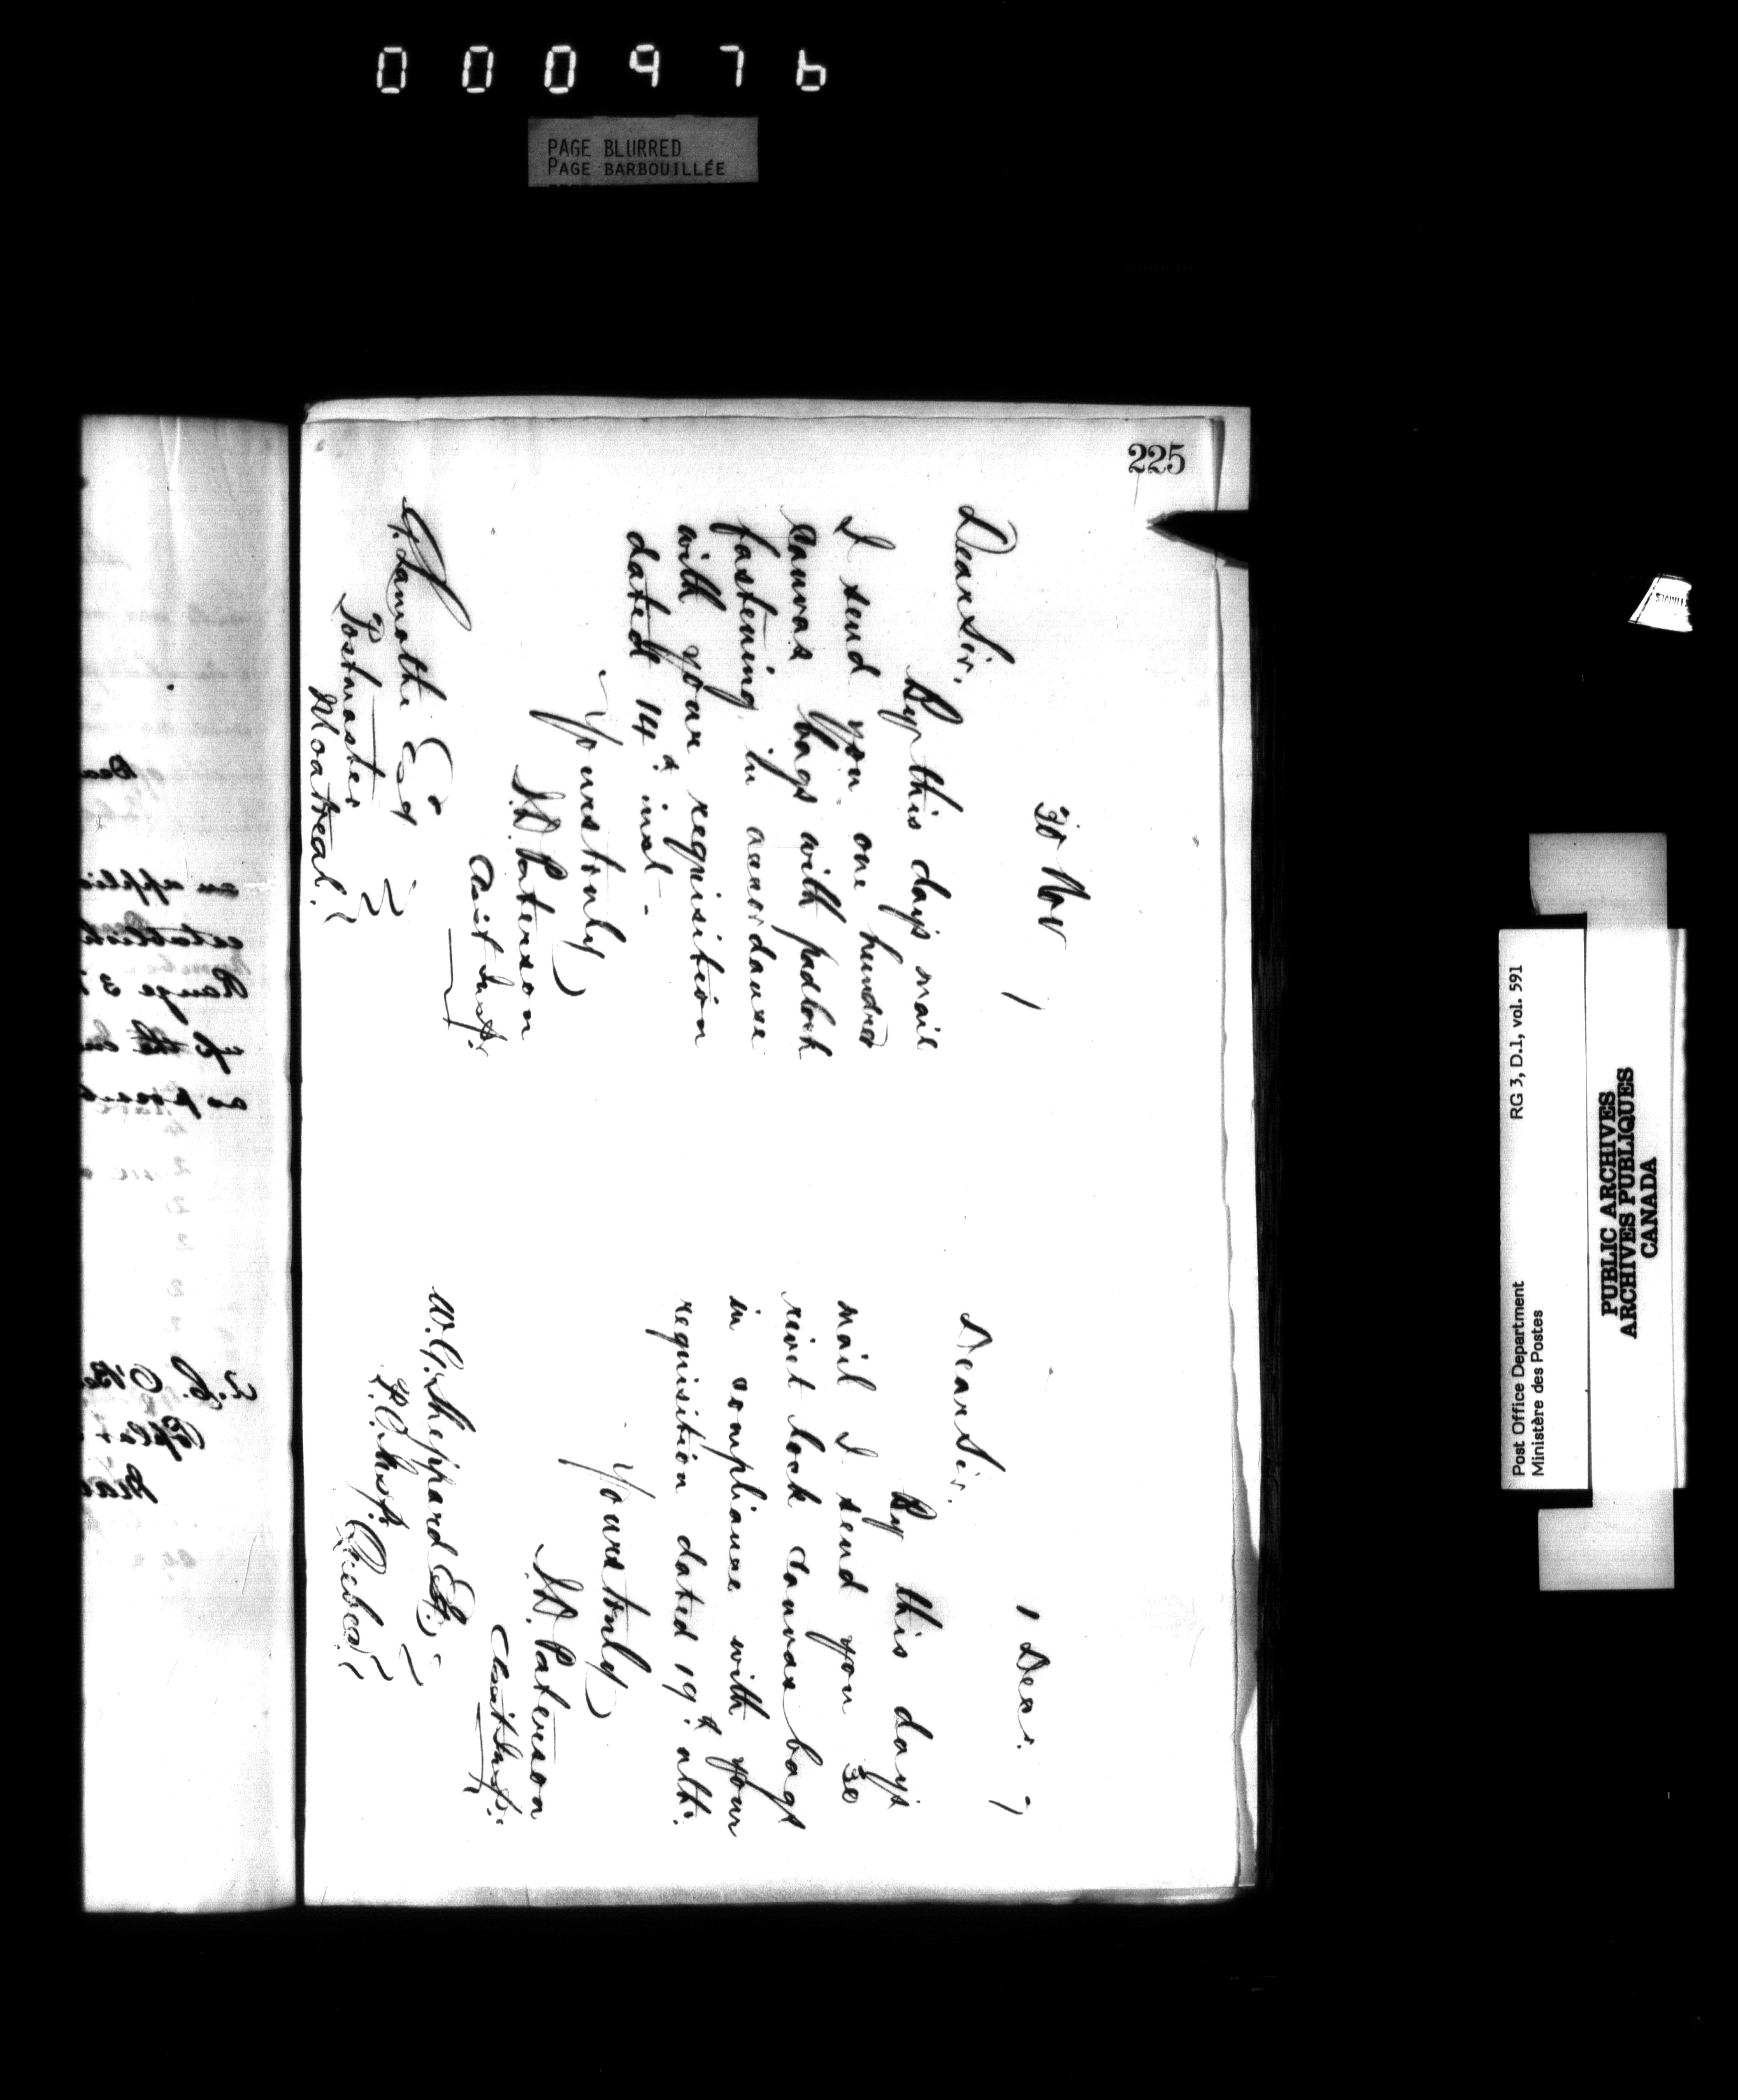 000976
PAGE BLURRED
PAGE BARBOUILLÉE
225
30 Nov
Dear Sir,
By this days mail
I send you one hundred
canvas bags with padlock
fastening in accordance
with your requisition
dated 14th inst -
Yours truly
J.D. Paterson
Asst Inspr.
G. Lamothe Esq
Postmaster
Montreal.
1 Dec. 7
Dear Sir.
By this days
mail I send you 30
rivet lock canvas bags
in compliance with your
requisition dated 19th ulto.
Yours truly
J.D. Paterson
Asst Inspr.
W.G. Sheppard Esq.
P.O. Inspr. Quebec
Post Office Department
Ministère des Postes
RG 3, D.1, vol. 591
PUBLIC ARCHIVES
ARCHIVES PUBLIQUES
CANADA